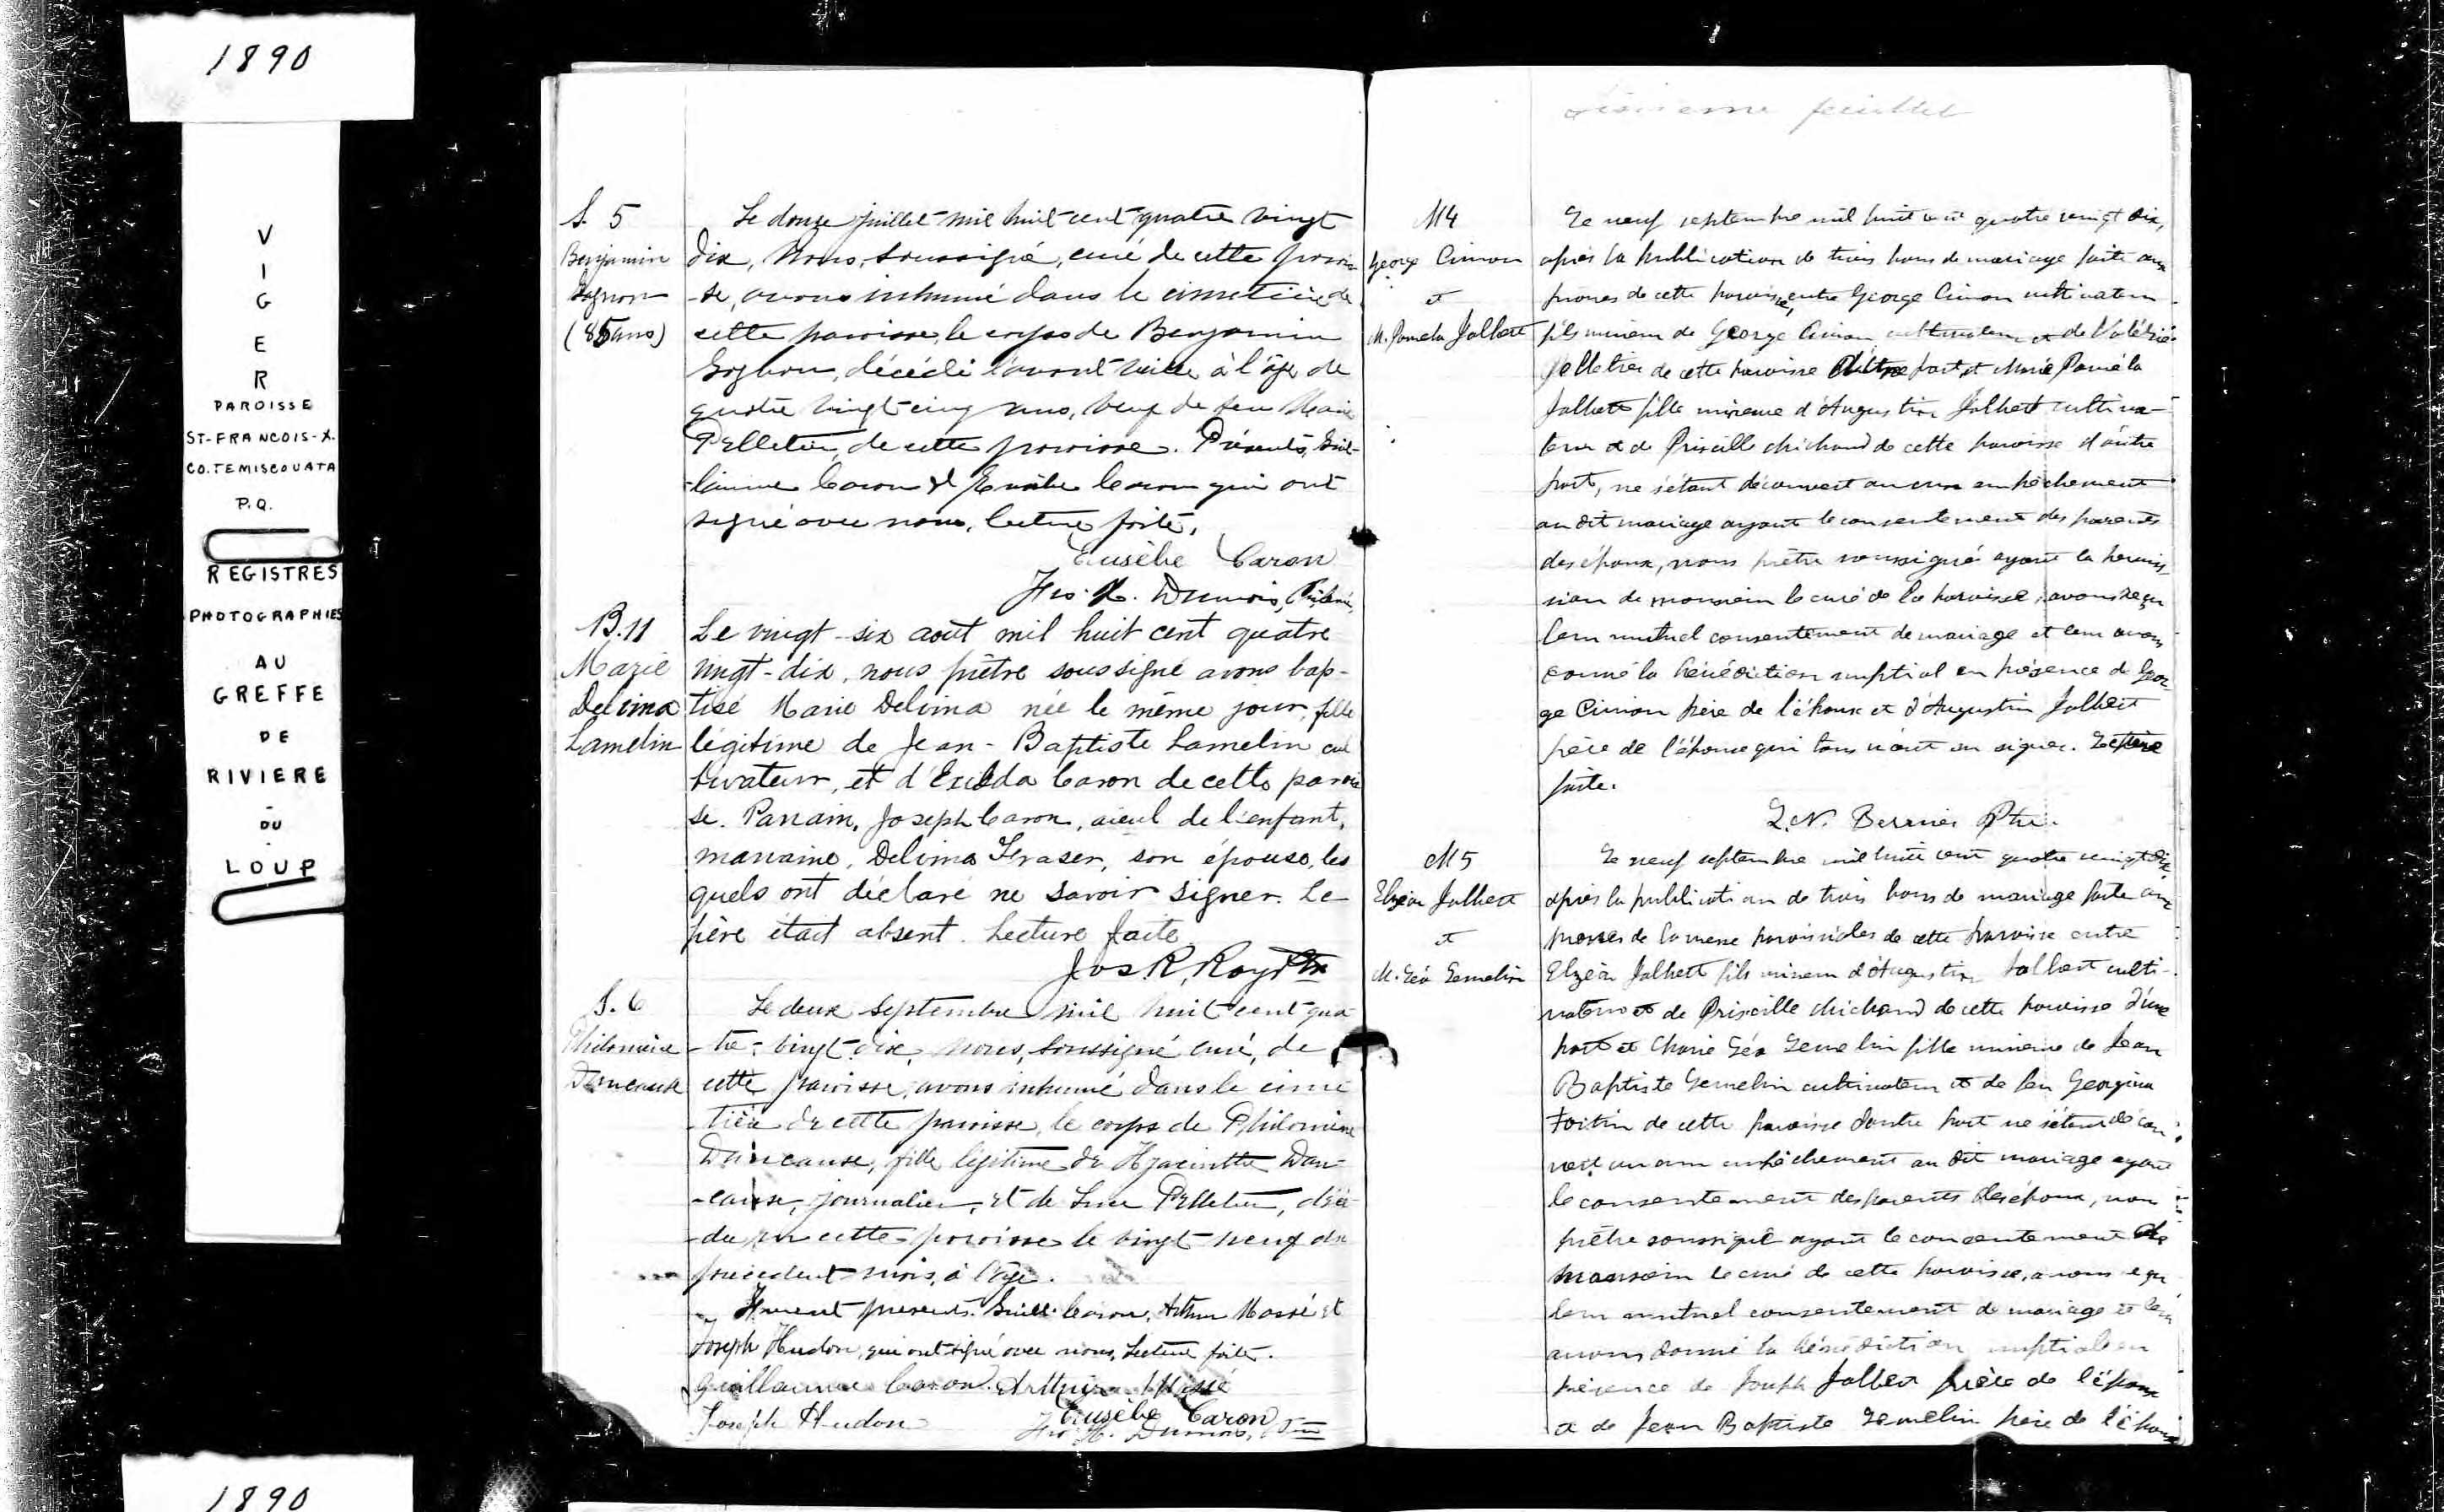 1890
VIGER
PAROISSE
ST-FRANCOIS-X.
CO. TEMISCOUATA
P.Q.
REGISTRES
PHOTOGRAPHIES
AU
GREFFE
DE
RIVIERE
-
DU
-
LOUP
1890
S. 5
Benjamin
Gagnon
(85 ans)
Le douze juillet mil huit cent quatre vingt
dix, Nous, soussigné, curé de cette parois
-se, avons inhumé dans le cimetière de
cette paroisse, le corps de Benjamin
Gagnon, décédé l'avant veille à l'âge de
quatre vingt cinq ans, veuf de feu Marie
Pelletier, de cette paroisse. Présents, Guil-
-laume Caron & Eusèbe Caron qui ont
signé avec nous, lecture faite.
Eusèbe Caron
Frs. X. Dumais, Ptre,
B.11
Marie
Delima
Lamelin
Le vingt-six août mil huit cent quatre
vingt-dix, nous prêtre soussigné avons bap-
tisé Marie Delima née le même jour, fille
légitime de Jean-Baptiste Lamelin cul
tivateur, et d'Exilda Caron de cette parois
se. Parrain, Joseph Caron, aieul de l'enfant,
marraine, Delima Fraser, son épouse, les
quels ont déclaré ne savoir signer. Le
père était absent. Lecture faite
Jos R, Roy Ptre
S. 6
Philomène
Dancause
Le deux septembre mil huit cent qua
-tre-vingt-dix, nous, soussigné curé, de
cette paroisse, avons inhumé dans le cime
-tière de cette paroisse, le corps de Philomène
Dancause, fille légitime de Hyacinthe Dan-
-cause, journalier, et de Luce Pelletier, décé
-dée en cette paroisse le vingt-neuf du
précédent mois, à l'âge.
Furent présents. Guill. Caron, Arthur Massé et
Joseph Hudon, qui ont signé avec nous, Lecture faite.
Guillaume Caron. Arthur Massé
Joseph Hudon Eusèbe Caron
Frs. X. Dumais, Ptre
feuillet
M4
George Cimon
et
M. Pamela Jalbert
Le neuf septembre mil huit cent quatre vingt dix,
après la publication de trois bans de mariage faite aux
prones de cette paroisse, entre George Cimon cultivateur
fils mineur de George Cimon cultivateur et de Valérie
Pelletier de cette paroisse d'une part, et Marie Paméla
Jalbert fille mineure d'Augustin Jalbert cultiva-
teur et de Priscille Michaud de cette paroisse d'autre
part, ne s'étant découvert aucun empêchement
au dit mariage ayant le consentement des parents
des époux, nous prêtre soussigné ayant la permis-
sion de monsieur le curé de la paroisse, avons reçu
leur mutuel consentement de mariage et leur avons
donné la bénédiction nuptial en présence de Geor-
ge Cimon père de l'époux et d'Augustin Jalbert
père de l'épouse qui tous n'ont su signer. Lecture
faite.
L.N. Bernier Ptre.
M5
Elzéar Jalbert
et
M. Léa Lemelin
Le neuf septembre mil huit cent quatre vingt dix
après la publication de trois bans de mariage faite aux
prones de la messe paroissiales de cette paroisse entre
Elzéar Jalbert fils mineur d'Augustin Jalbert culti-
vateur et de Priscille Michaud de cette paroisse d'une
part et Marie Léa Lemelin fille mineure de Jean
Baptiste Lemelin cultivateur et de feu Georgina
Fortin de cette paroisse d'autre part ne s'étant décou
vert aucun empêchement au dit mariage ayant
le consentement des parents des époux, nous
prêtre soussigné ayant le consentement de
monsieur le curé de cette paroisse, avons reçu
leur mutuel consentement de mariage et leur
avons donné la bénédiction nuptiale en
présence de Joseph Jalbert frère de l'époux
et de Jean Baptiste Lemelin père de l'épouse